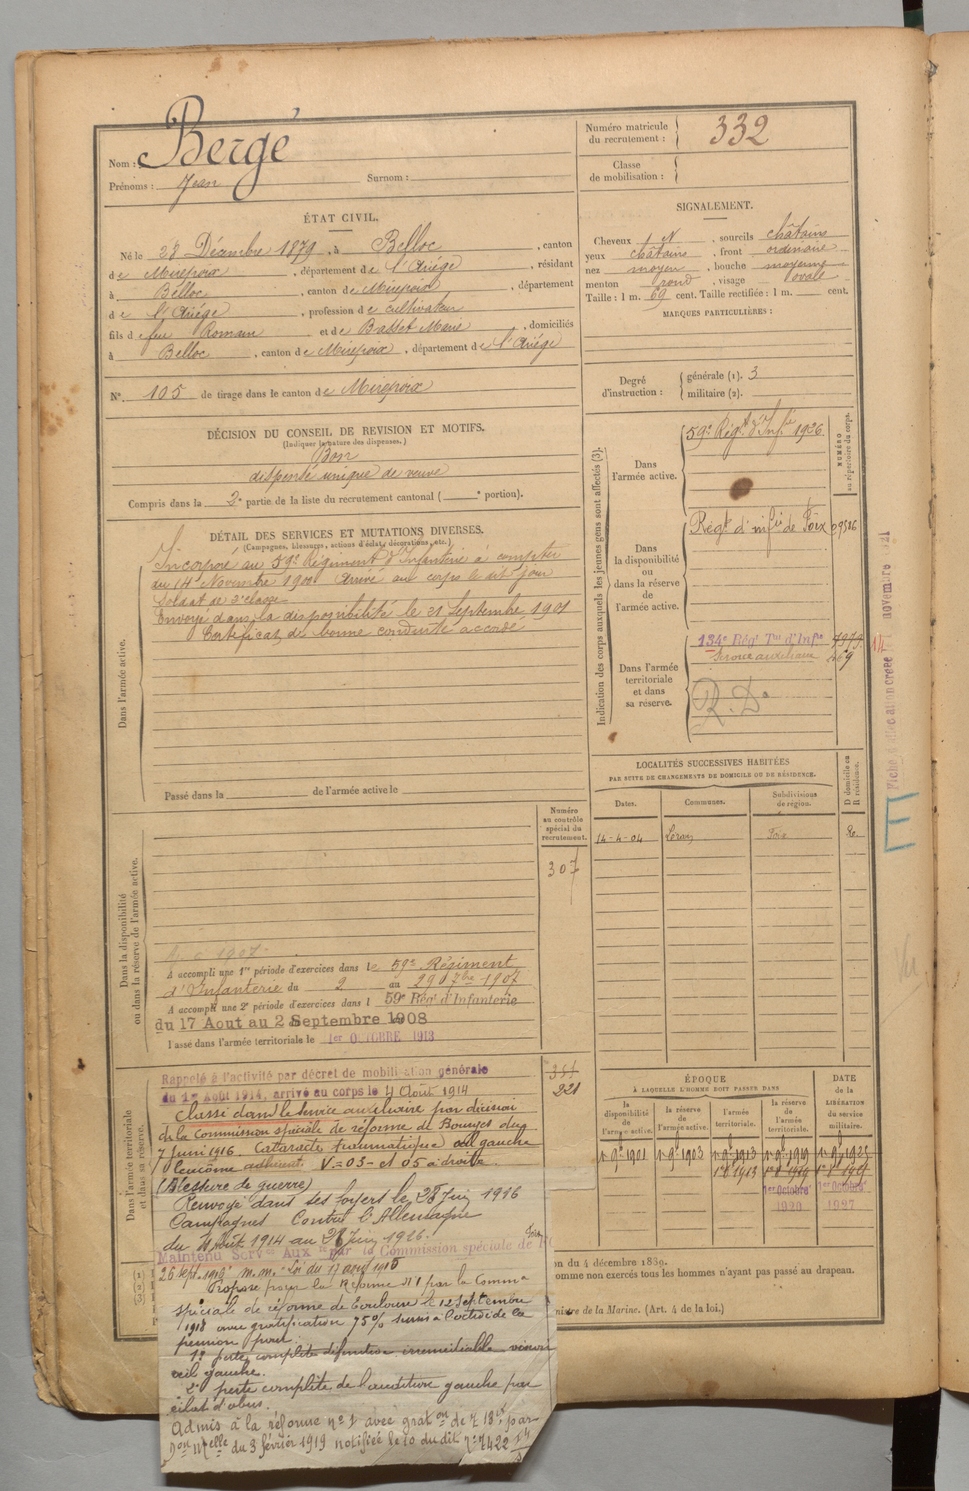 Nom : Bergé
Prénoms : Jean Surnom :
Numéro matricule du recrutement : 332
Classe de mobilisation :
ÉTAT CIVIL.
Né le 28 Décembre 1879, à Belloc, canton
de Mirepoix, département de l'Ariége, résidant
à Belloc, canton de Mirepoix, département
de l'Ariége, profession de cultivateur
fils de feu Romain et de Basset Marie, domiciliés
à Belloc, canton de Mirepoix, département de l'Ariége
N°. 105 de tirage dans le canton de Mirepoix
SIGNALEMENT.
Cheveux N, sourcils châtains
yeux châtains, front ordinaire
nez moyen, bouche moyenne
menton rond, visage ovale
Taille : 1 m. 69 cent. Taille rectifiée : 1 m. cent.
MARQUES PARTICULIÈRES :
Degré d'instruction : générale (1). 3
militaire (2).
DÉCISION DU CONSEIL DE REVISION ET MOTIFS.
(Indiquer la nature des dispenses.)
Bon
dispensé unique de veuve
Compris dans la 2e partie de la liste du recrutement cantonal ( e portion).
DÉTAIL DES SERVICES ET MUTATIONS DIVERSES.
(Campagnes, blessures, actions d'éclat, décorations, etc.)
Dans l'armée active.
Incorporé au 59e Régiment d'Infanterie à compter
du 14 Novembre 1900 Arrivé au corps le dit jour
Soldat de 2e classe
Envoyé dans la disponibilité le 21 Septembre 1901
Certificat de bonne conduite accordé
Passé dans la de l'armée active le
Indication des corps auxquels les jeunes gens sont affectés (3).
NUMÉRO au répertoire du corps.
Dans l'armée active.
59e Régt d'Infie 1926
Dans la disponibilité ou dans la réserve de l'armée active.
Régt d'infie de Foix 09326
Dans l'armée territoriale et dans sa réserve.
134e Régt Tal d'Infie
Service auxiliaire
R.D.
Fiche d'affectation créée novembre 1921
LOCALITÉS SUCCESSIVES HABITÉES
PAR SUITE DE CHANGEMENTS DE DOMICILE OU DE RÉSIDENCE.
Dates. Communes. Subdivisions de région. D domicile ou R résidence.
14-4-04 Léran Foix R.
Dans la disponibilité ou dans la réserve de l'armée active.
Numéro au contrôle spécial du recrutement.
307
A accompli une 1re période d'exercices dans le 59e Régiment
d'Infanterie du 2 au 29 7bre 1907
A accompli une 2e période d'exercices dans l 59e Régt d'Infanterie
du 17 Aout au 2 Septembre 1908
Passé dans l'armée territoriale le 1er OCTOBRE 1913
Dans l'armée territoriale et dans sa réserve.
221
Rappelé à l'activité par décret de mobilisation générale
du 1er Août 1914, arrivé au corps le 4 Août 1914
Classé dans le service auxiliaire par décision
de la commission spéciale de réforme de Bourges du
7 juin 1916. Cataracte traumatique œil gauche
leucôme adhérent V = 03 et 05 à droite
(Blessure de guerre)
Renvoyé dans ses foyers le 28 Juin 1916
Campagnes Contre l'Allemagne
du 4 Août 1914 au 28 Juin 1916
Maintenu Servce Auxre par la Commission spéciale de
26 sept. 1918 Loi du 17 aout 1915
Proposé pour la Réforme N°1 par la Common
spéciale de réforme de Toulouse le 12 septembre
1918 avec gratification 75%
pension pour :
1° perte complète définitive irrémédiable vision
œil gauche.
2° perte complète de l'auditure gauche par
éclat d'obus.
Admis à la réforme n° 1 avec graton de
don Melle du 3 février 1919 notifiée le 10 du dit
ÉPOQUE
À LAQUELLE L'HOMME DOIT PASSER DANS
DATE de la LIBÉRATION du service militaire.
la disponibilité de l'armée active. la réserve de l'armée active. l'armée territoriale. la réserve de l'armée territoriale.
1er 9bre 1901 1er 9bre 1903 1er 9bre 1913 1er 9bre 1919 1er 9bre 1925
1er 8bre 1913
1er Octobre 1920 1er Octobre 1927
on du 4 décembre 1889.
omme non exercés tous les hommes n'ayant pas passé au drapeau.
nistre de la Marine. (Art. 4 de la loi.)